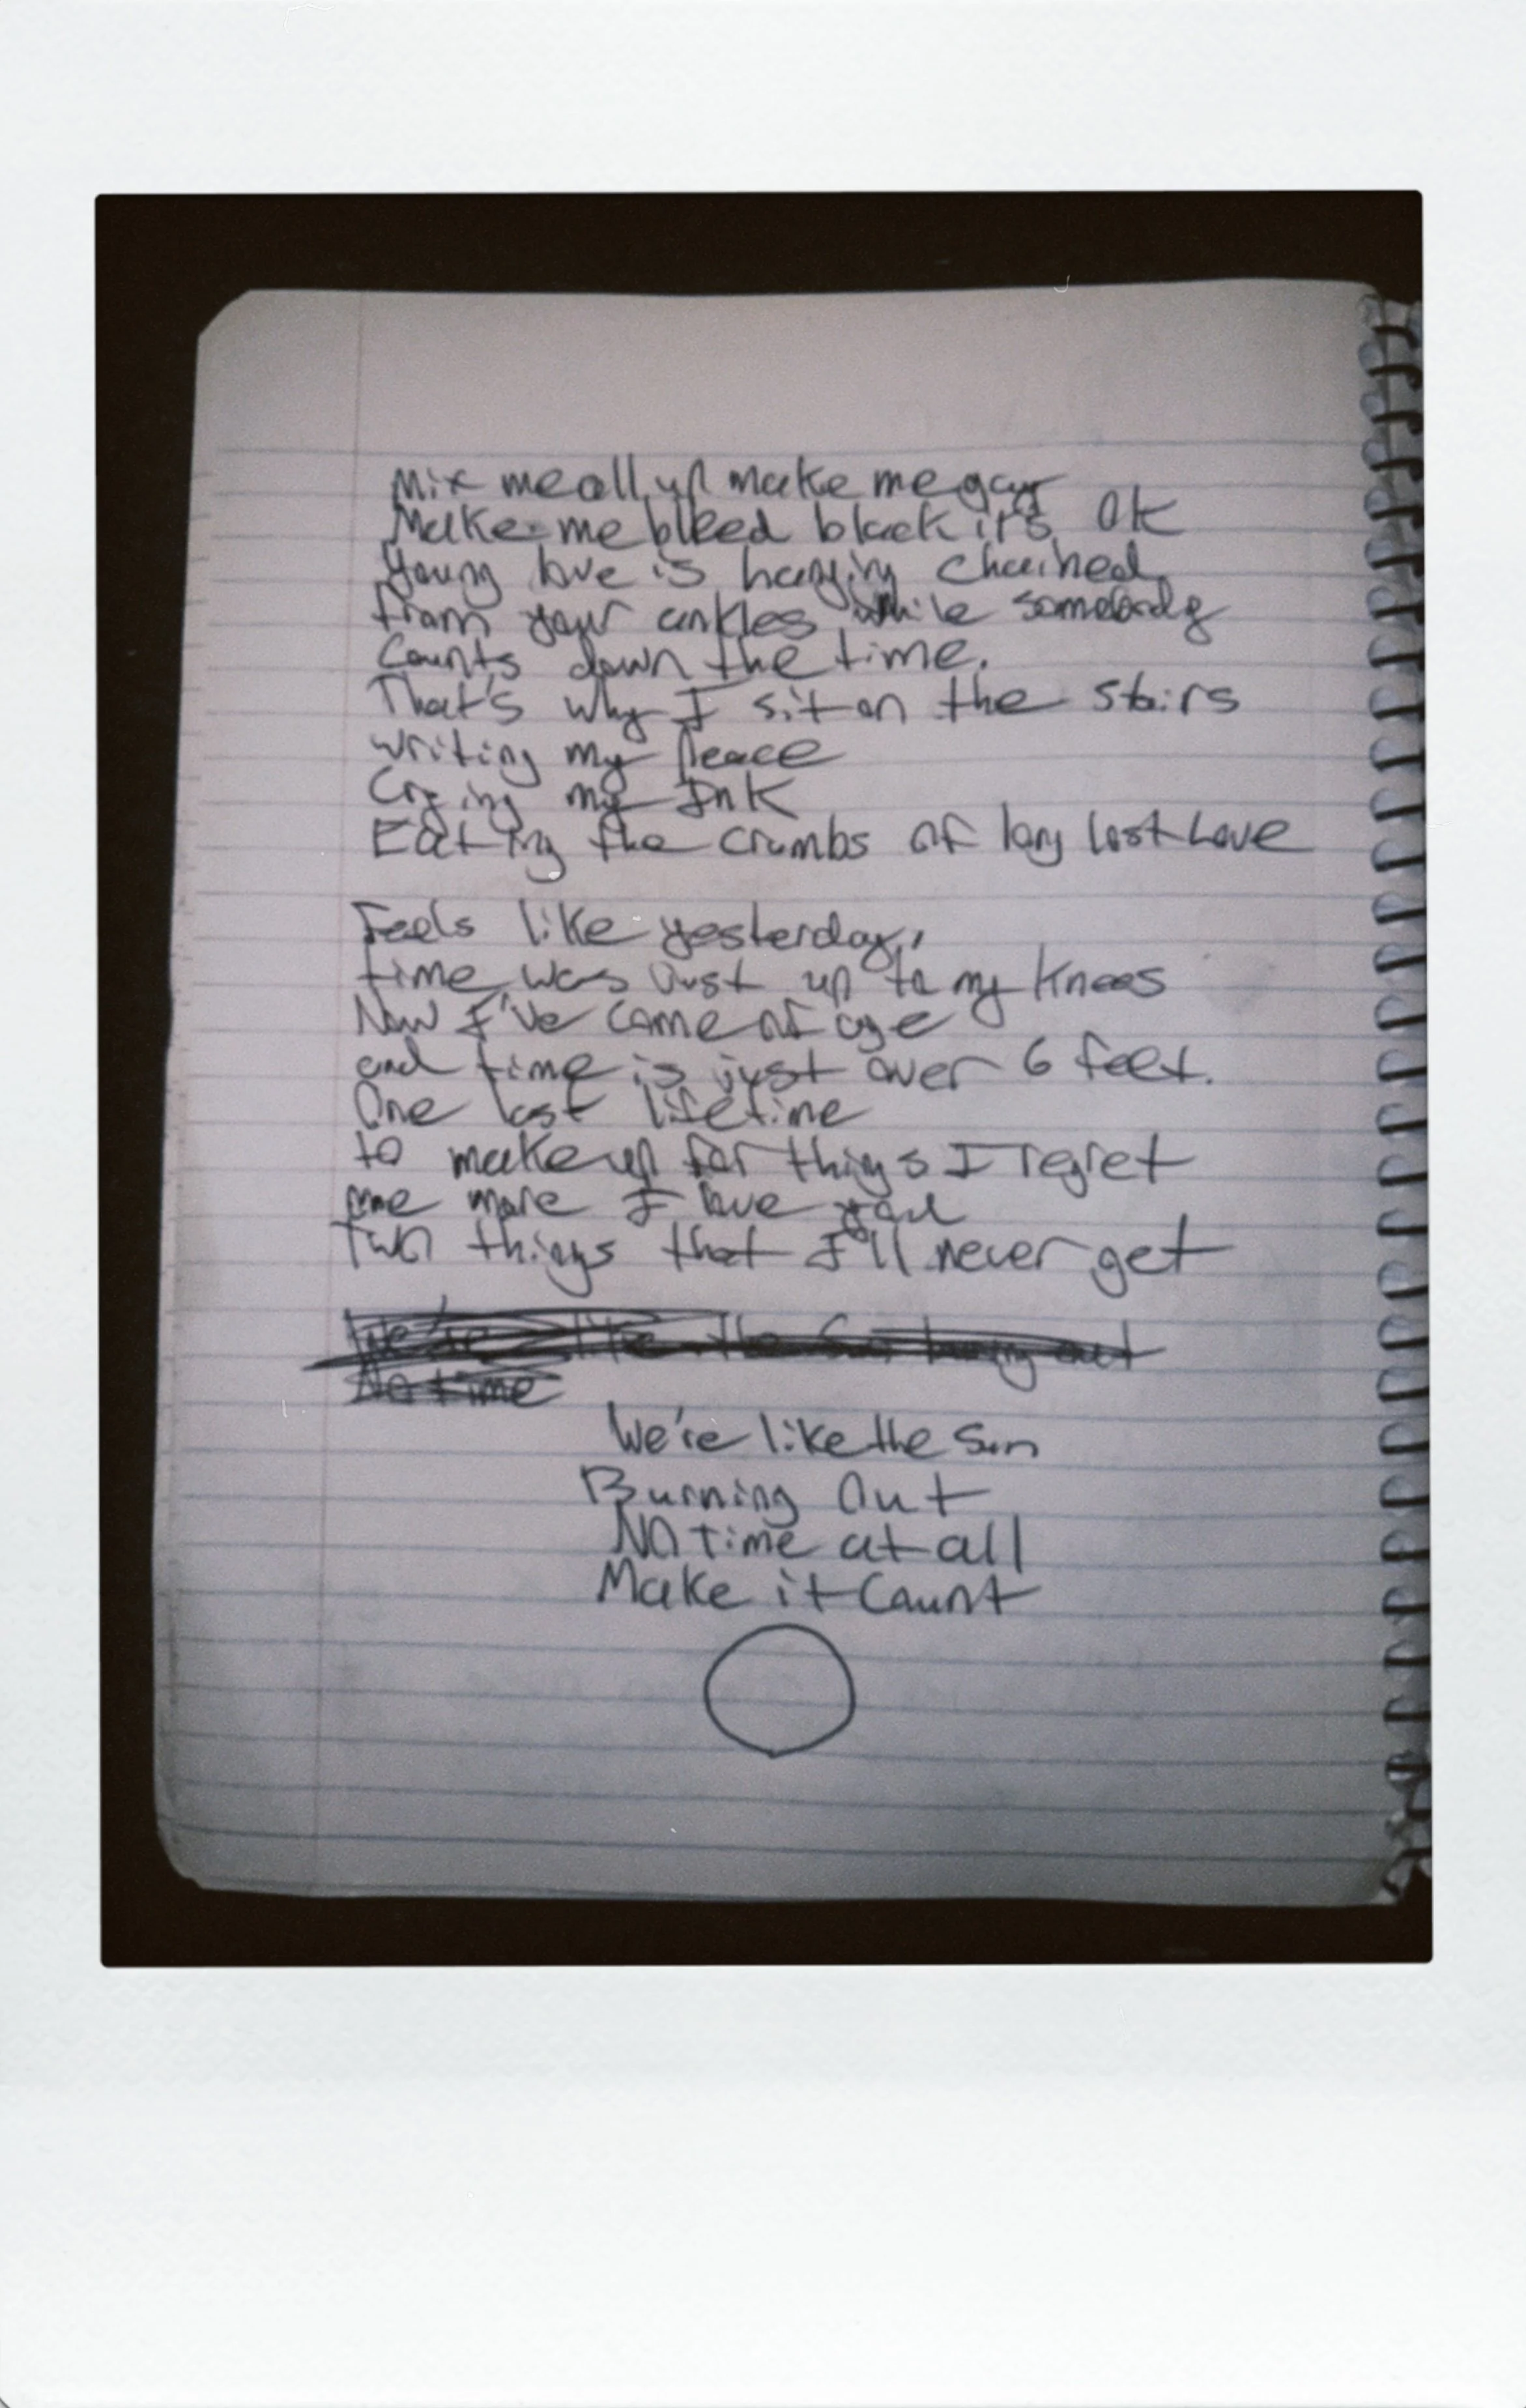 Mix me all up make me gay
Make me bleed black it's OK
Young love is hanging chained
from your ankles while somebody
Counts down the time.
That's why I sit on the stairs
writing my peace
Crying my Ink
Eating the crumbs of long lost Love
Feels like yesterday,
time was just up to my knees
Now I've come of age
and time is just over 6 feet.
One last lifetime
to make up for things I regret
one more I love you
Two things that I'll never get
We're like the Sun burning out
No time
We're like the Sun
Burning Out
No time at all
Make it Count